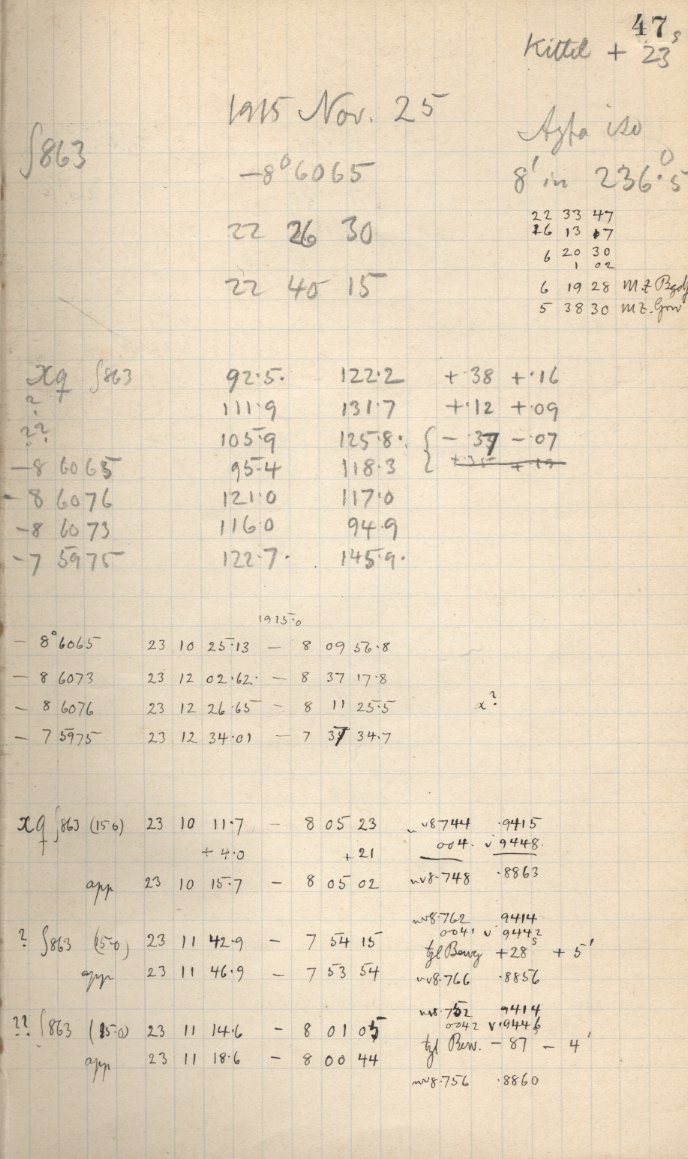 47
Kittel + 23s
1915 Nov. 25
Agfa iso
∫863
-8°6065
8' in 236°.5
22 26 30
22 40 15
22 33 47
26 13 17
6 20 30
1 02
6 19 28 M.Z. Bgdf
5 38 30 M.Z. Grw
∫863 92.5. 122.2 +.38 +.16
? 111.9 131.7 +.12 +.09
?? 105.9 125.8. { -.37 -.07
-8 6065 95.4 118.3 +35 +.19
-8 6076 121.0 117.0
-8 6073 116.0 94.9
-7 5975 122.7. 145.9.
1915.0
- 8°6065 23 10 25.13 - 8 09 56.8
- 8 6073 23 12 02.62. - 8 37 17.8
- 8 6076 23 12 26.65 - 8 11 25.5 x?
- 7 5975 23 12 34.01 - 7 37 34.7
∫863 (15.0) 23 10 11.7 - 8 05 23 nv8744 .9415
+4.0 +21 004. v 9448.
app 23 10 15.7 - 8 05 02 nv8.748 .8863
nv8.762 9414
0041 v 9442
? ∫863 (15.0) 23 11 42.9 - 7 54 15 tgl Bewg +28s +5'
app 23 11 46.9 - 7 53 54 nv8.766 .8856
nv8.752 9414
0042 v.9446
?? ∫863 (15.0) 23 11 14.6 - 8 01 05 tgl Bew. - 87s - 4'
app 23 11 18.6 - 8 00 44
nv8.756 .8860